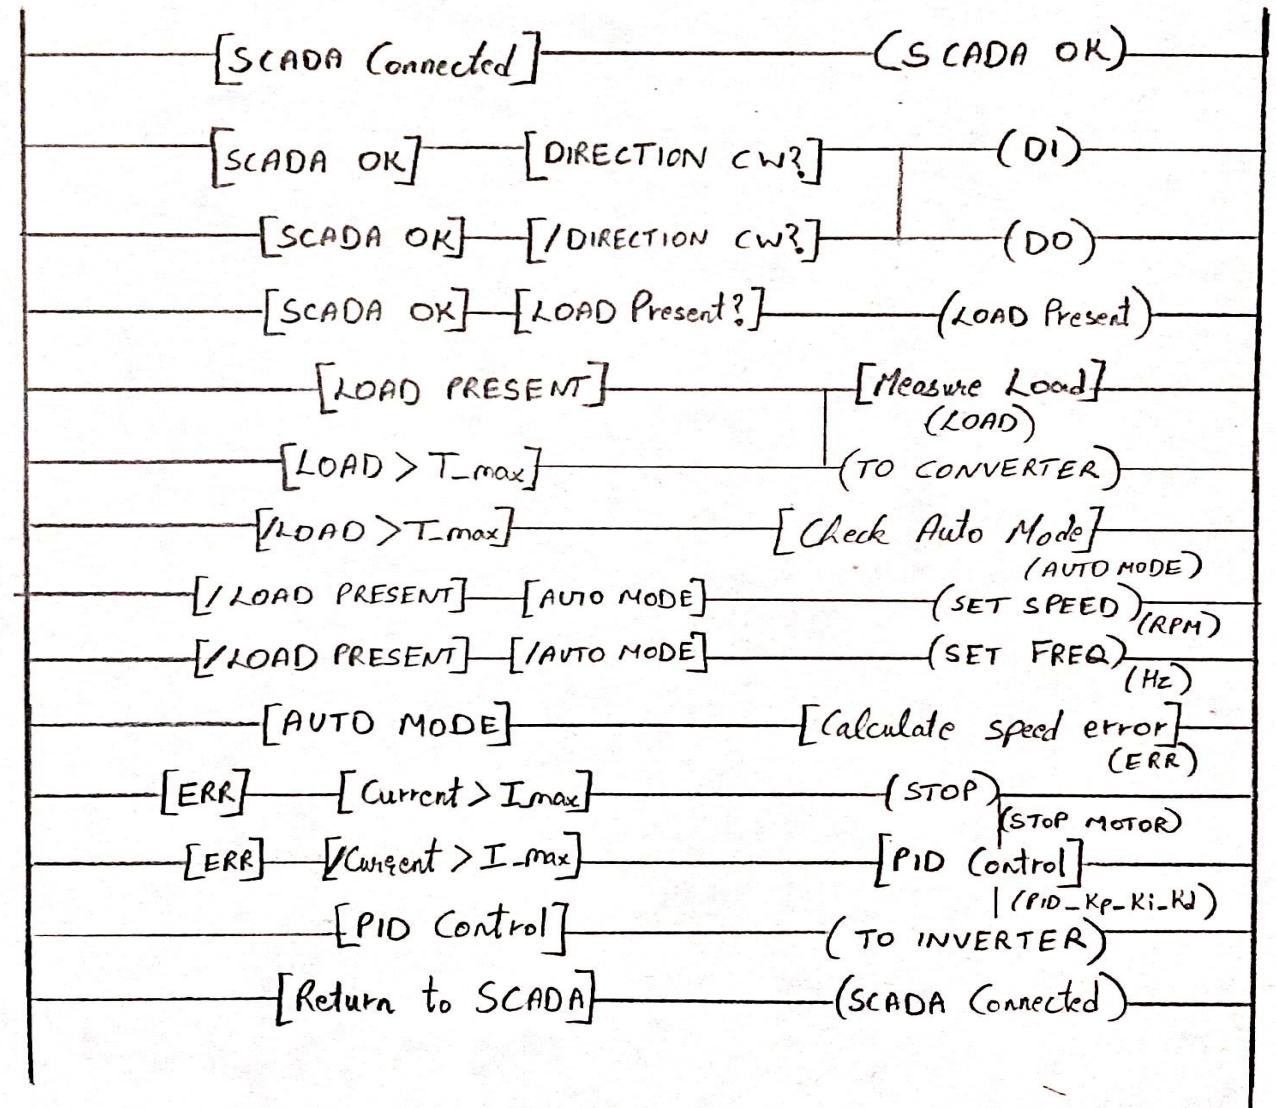 [SCADA Connected] (SCADA OK)
[SCADA OK] [DIRECTION CW?] (D1)
[SCADA OK] [/DIRECTION CW?] (D0)
[SCADA OK] [LOAD Present?] (LOAD Present)
[LOAD PRESENT] [Measure Load]
(LOAD)
[LOAD > T_max] (TO CONVERTER)
[/LOAD > T_max] [Check Auto Mode]
(AUTO MODE)
[/LOAD PRESENT] [AUTO MODE] (SET SPEED)
(RPM)
[/LOAD PRESENT] [/AUTO MODE] (SET FREQ)
(Hz)
[AUTO MODE] [Calculate speed error]
(ERR)
[ERR] [Current > Imax] (STOP)
(STOP MOTOR)
[ERR] [/Current > I_max] [PID Control]
(PID_Kp_Ki_Kd)
[PID Control] (TO INVERTER)
[Return to SCADA] (SCADA Connected)